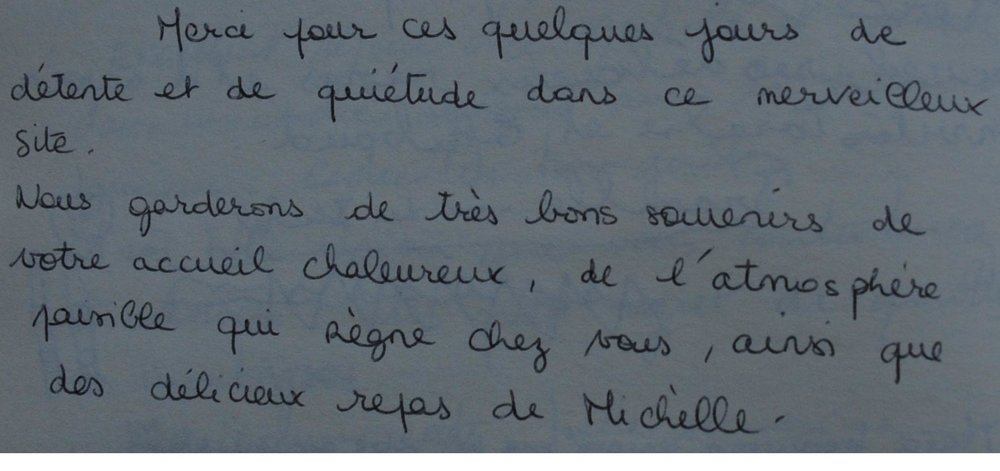 Merci pour ces quelques jours de
détente et de quiétude dans ce merveilleux
site.
Nous garderons de très bons souvenirs de
votre accueil chaleureux, de l'atmosphère
paisible qui règne chez vous, ainsi que
des délicieux repas de Michèlle.